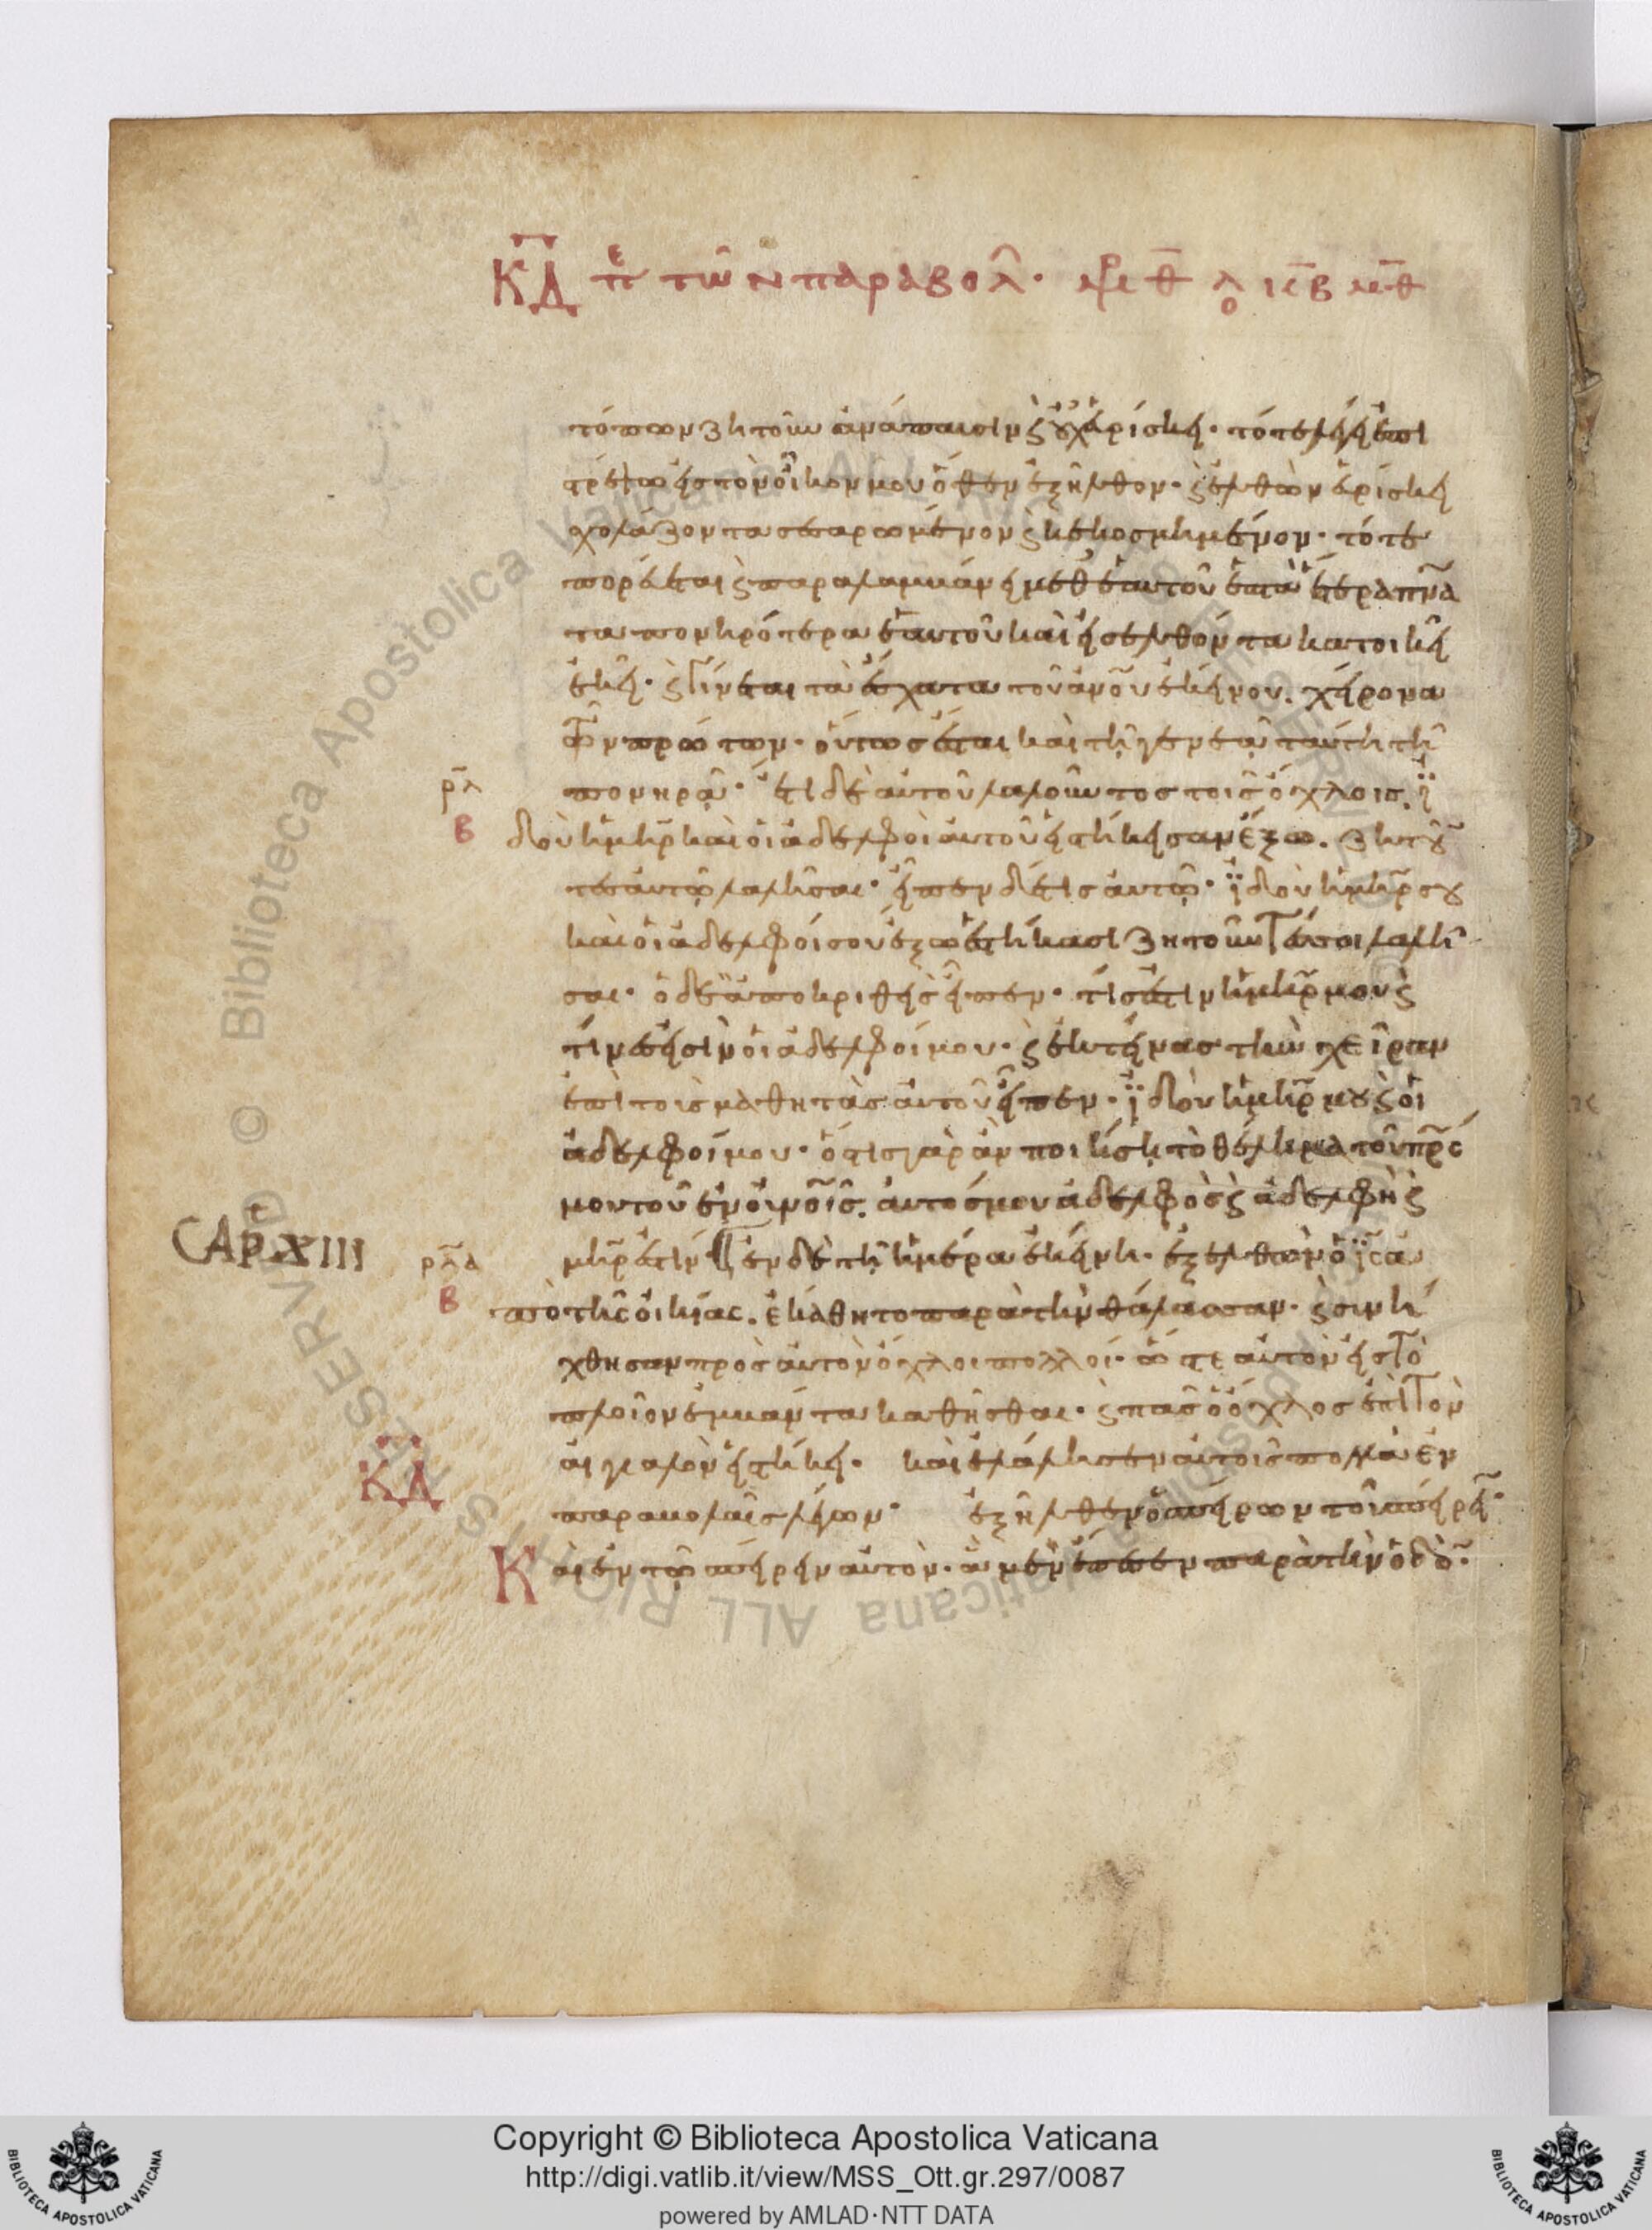 ΚΔ πε τῶν παραβολ
τόπων ζητοῦν ἀνάπαυσιν ϗ οὐχ ἑυρίσκει· τότε λέγει ἐπι
στρέψω εἰς τὸν οἶκον μου ὅθεν ἐξῆλθον· ϗ ἐλθὼν ἑυρίσκει
σχολάζοντα σεσαρωμένον ϗ κεκοσμημένον· τότε
πορέυεται ϗ παραλαμβάνει μεθ ἑαυτοῦ ἑπτὰ ἕτερα πνα
τα πονηρότερα ἑαυτοῦ καὶ εἰσελθόντα κατοικεῖ
ἐκεῖ· ϗ γίνεται τὰ ἔσχατα τοῦ ἀνου ἐκείνου. χείρονα
τῶν πρώτων· οὕτως ἔσται καὶ τῇ γενεᾷ ταύτη τῇ
ρλ
πονηρᾷ· ἔτι δὲ αὐτοῦ λαλοῦντος τοῖς ὄχλοις. ϊ
Β
δοὺ ἡ μηρ καὶ οἱ ἀδελφοὶ αὐτοῦ εἱστήκεισαν ἔξω. ζητοῦν
τες αὐτῷ λαλῆσαι· εἶπεν δέ τις αὐτῷ· ϊδοὺ ἡ μηρ σου
καὶ οἱ ἀδελφοί σου ἔξω ἑστήκασι ζητοῦντές σοι λαλῆ
σαι· ὁ δὲ ἀποκριθεὶς εἶπεν· τίς ἐστιν ἡ μηρ μου ϗ
τίνες εἰσὶν οἱ ἀδελφοί μου· ϗ ἐκτείνας τὴν χεῖραν
ἐπὶ τοὶς μαθητὰς αὐτοῦ εἶπεν· ϊδοὺ ἡ μηρ μου ϗ οἱ
ἀδελφοί μου· ὅστις γὰρ ἂν ποιήσῃ τὸ θέλημα τοῦ πρς
μου τοῦ ἐν οὐνοῖς. αὐτός μου ἀδελφὸς ϗ ἀδελφὴ ϗ
CAP. XIII
ρλα
μηρ ἐστίν· ἐν δὲ τῇ ἡμέρα ἐκείνη· ἐξελθὼν ὁ ϊς ἀ
Β
πὸ τῆς οἰκίας. ἐκάθητο παρὰ τὴν θάλασσαν· ϗ σινή
χθησαν πρὸς αὐτὸν ὄχλοι πολλοί· ὥστε αὐτὸν εἰς τὸ
πλοῖον ἐμβάντα καθῆσθαι· ϗ πᾶς ὁ ὄχλος ἐπὶ τὸν
αἰγιαλὸν εἱστήκει· καὶ ἐλάλησεν αὐτοῖς πολλὰ ἐν
ΚΔ
παραβολαῖς λέγων· ἐξῆλθεν ὁ σπείρων τοῦ σπείρει·
Καὶ ἐν τῷ σπείρειν αὐτὸν· ἃ μὲν ἔπεσεν παρὰ τὴν ὁδὸ·
Copyright © Biblioteca Apostolica Vaticana
http://digi.vatlib.it/view/MSS_Ott.gr.297/0087
powered by AMLAD·NTT DATA